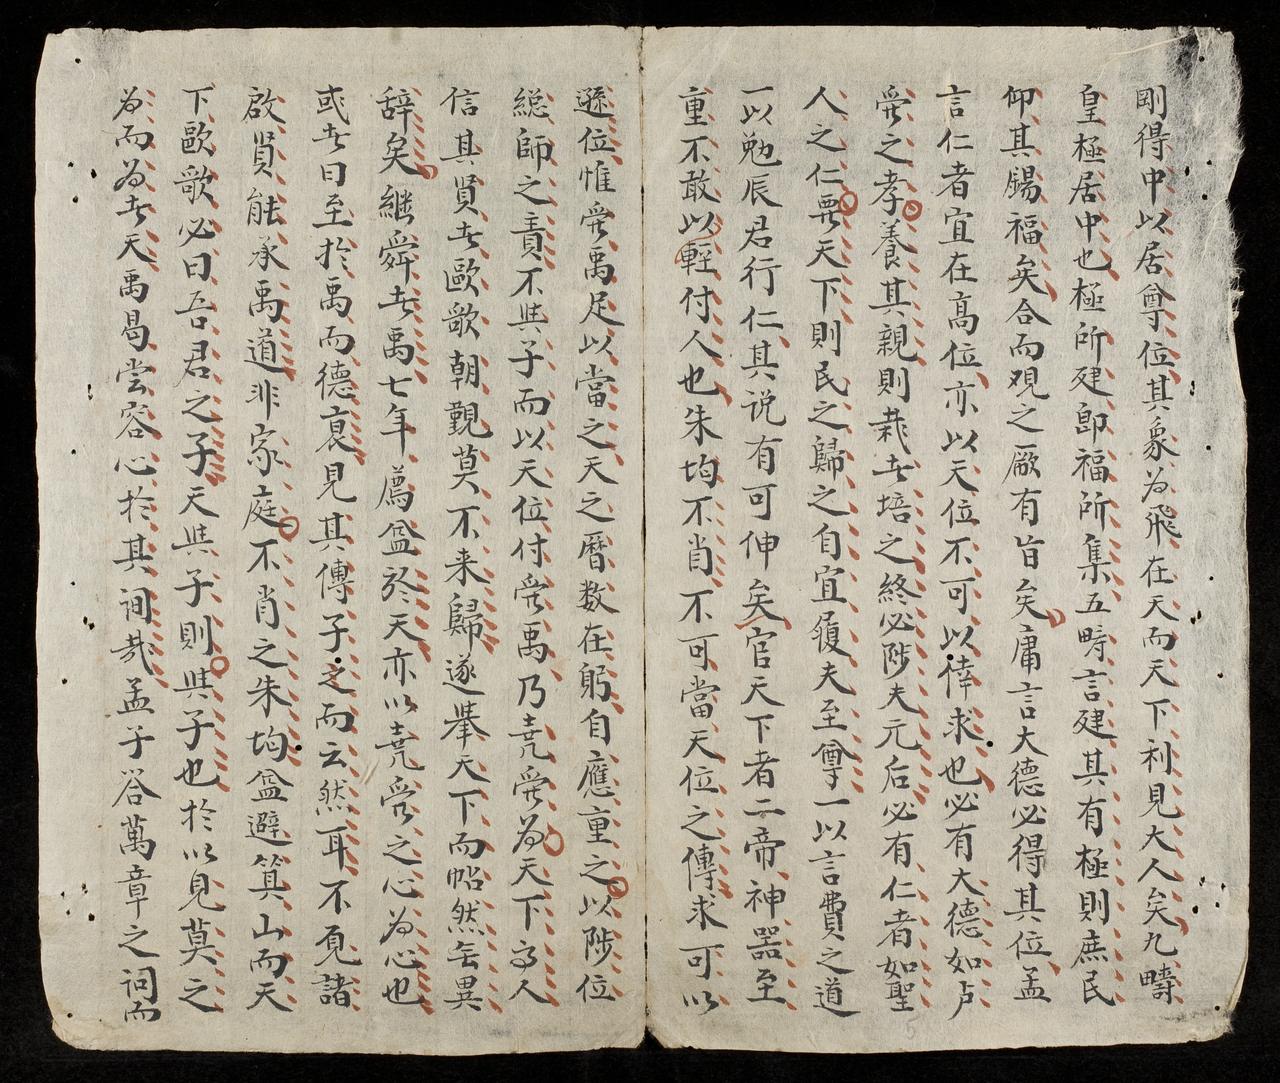 剛得中以居尊位其象為飛在天而天下利見大人矣九疇
皇極居中也極所建即福所集五畤言建其有極則庶民
仰其賜福矣合而观之厥有旨矣庸言大德必得其位孟
言仁者宜在高位亦以天位不可以倖求也必有大德如
之孝養其親則栽者培之終必陟夫元后必有仁者如聖
人之仁天下則民之歸之自宜履夫至尊一以言費之道
一以勉辰君行仁其说有可伸矣官天下者二帝神器至
重不敢以輕付人也朱均不肖不可當天位之傳求可以
遜位惟禹足以當之天之曆数在躬自應重之以陟位
總師之責不與子而以天位付禹乃堯為天下人
信其賢者歐歌朝覲莫不来歸遂举天下而帖然無異
辞矣継舜者禹七年薦益於天亦以堯之心為心也
或者曰至於禹而德衰見其傳子之而云然耳不覓諸
啟賢能承禹道非家庭不肖之朱均益避箕山而天
下歐歌必曰吾君之子天與子則與子也於以見莫之
為而為者天禹曷尝容心於其间哉孟子答萬章之词而